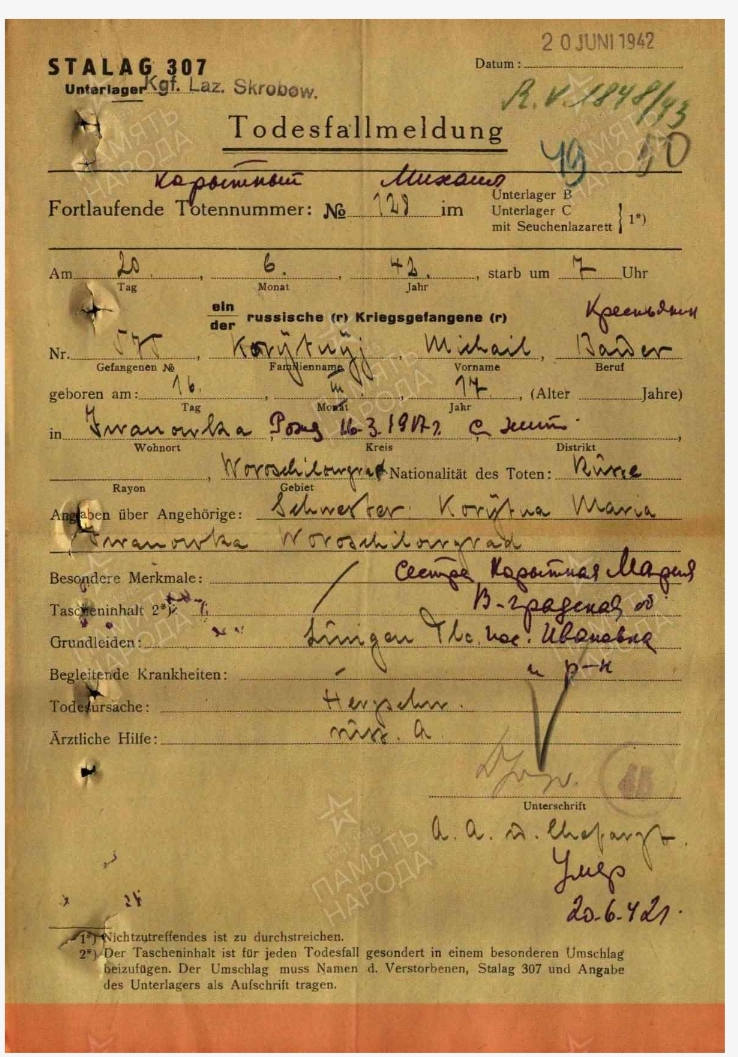 20 JUNI 1942
STALAG 307
Datum:
Unterlager Kgf. Laz. Skrobow.
R.V. 1848/43
Todesfallmeldung
49 50
Корытный Михаил
Fortlaufende Totennummer: № 128 im Unterlager B
Unterlager C
mit Seuchenlazarett } 1*)
Am 20. 6. 42. starb um 7 Uhr
Tag Monat Jahr
ein
der russische (r) Kriegsgefangene (r)
Крестьянин
Nr. 575, Korÿtnÿj, Michail,
Gefangenen № Familienname Vorname Beruf
geboren am: 16. III. 17. (Alter Jahre)
Tag Monat Jahr
in Iwanowka Рожд 16-3.1917г.
Wohnort Kreis Distrikt
Woroschilowgrad Nationalität des Toten:
Rayon Gebiet
Angaben über Angehörige: Schwester Korÿtna Maria
Iwanowka Woroschilowgrad
Besondere Merkmale: Сестра Корытная Мария
Tascheninhalt 2*): В-градская об
Grundleiden: Lungen Tbc. пос. Ивановка
Begleitende Krankheiten: р-н
Todesursache:
Ärztliche Hilfe: russ. A.
45
Unterschrift
A. A. d. Chefarzt.
Умер
20-6-42г.
1*) Nichtzutreffendes ist zu durchstreichen.
2*) Der Tascheninhalt ist für jeden Todesfall gesondert in einem besonderen Umschlag
beizufügen. Der Umschlag muss Namen d. Verstorbenen, Stalag 307 und Angabe
des Unterlagers als Aufschrift tragen.
ПАМЯТЬ
НАРОДА